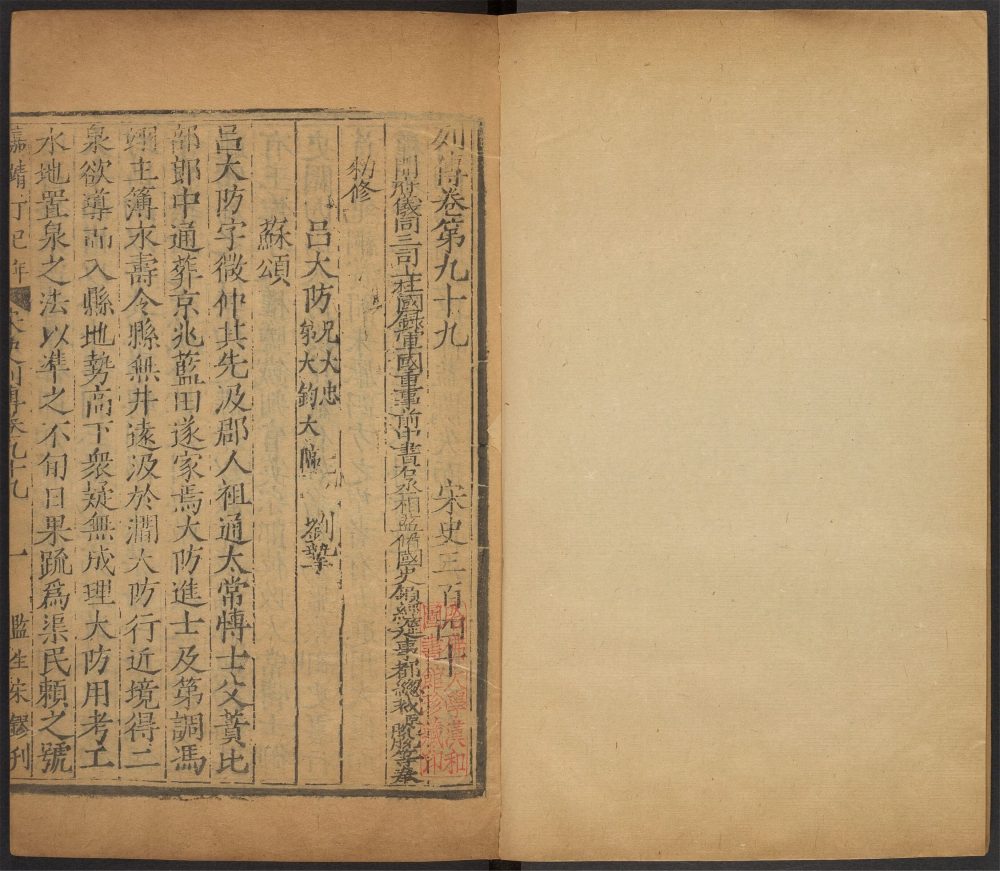 列傳卷第九十九 宋史三百四十
開府儀同三司上柱國錄軍國重事前中書右丞相監修國史領經筵事都總裁臣脫脫等奉
勑修
呂大防 兄大忠 弟大鈞 大臨 劉摯
蘇頌
呂大防字微仲其先汲郡人祖通太常博士父蕡比
部郎中通葬京兆藍田遂家焉大防進士及第調馮
翊主簿永壽令縣無井遠汲於澗大防行近境得二
泉欲導而入縣地勢高下衆疑無成理大防用考工
水地置泉之法以準之不旬日果疏爲渠民賴之號
嘉靖丁巳年 宋史列傳卷九十九 一 監生朱鏐刊
大學漢和
圖書館珍藏印